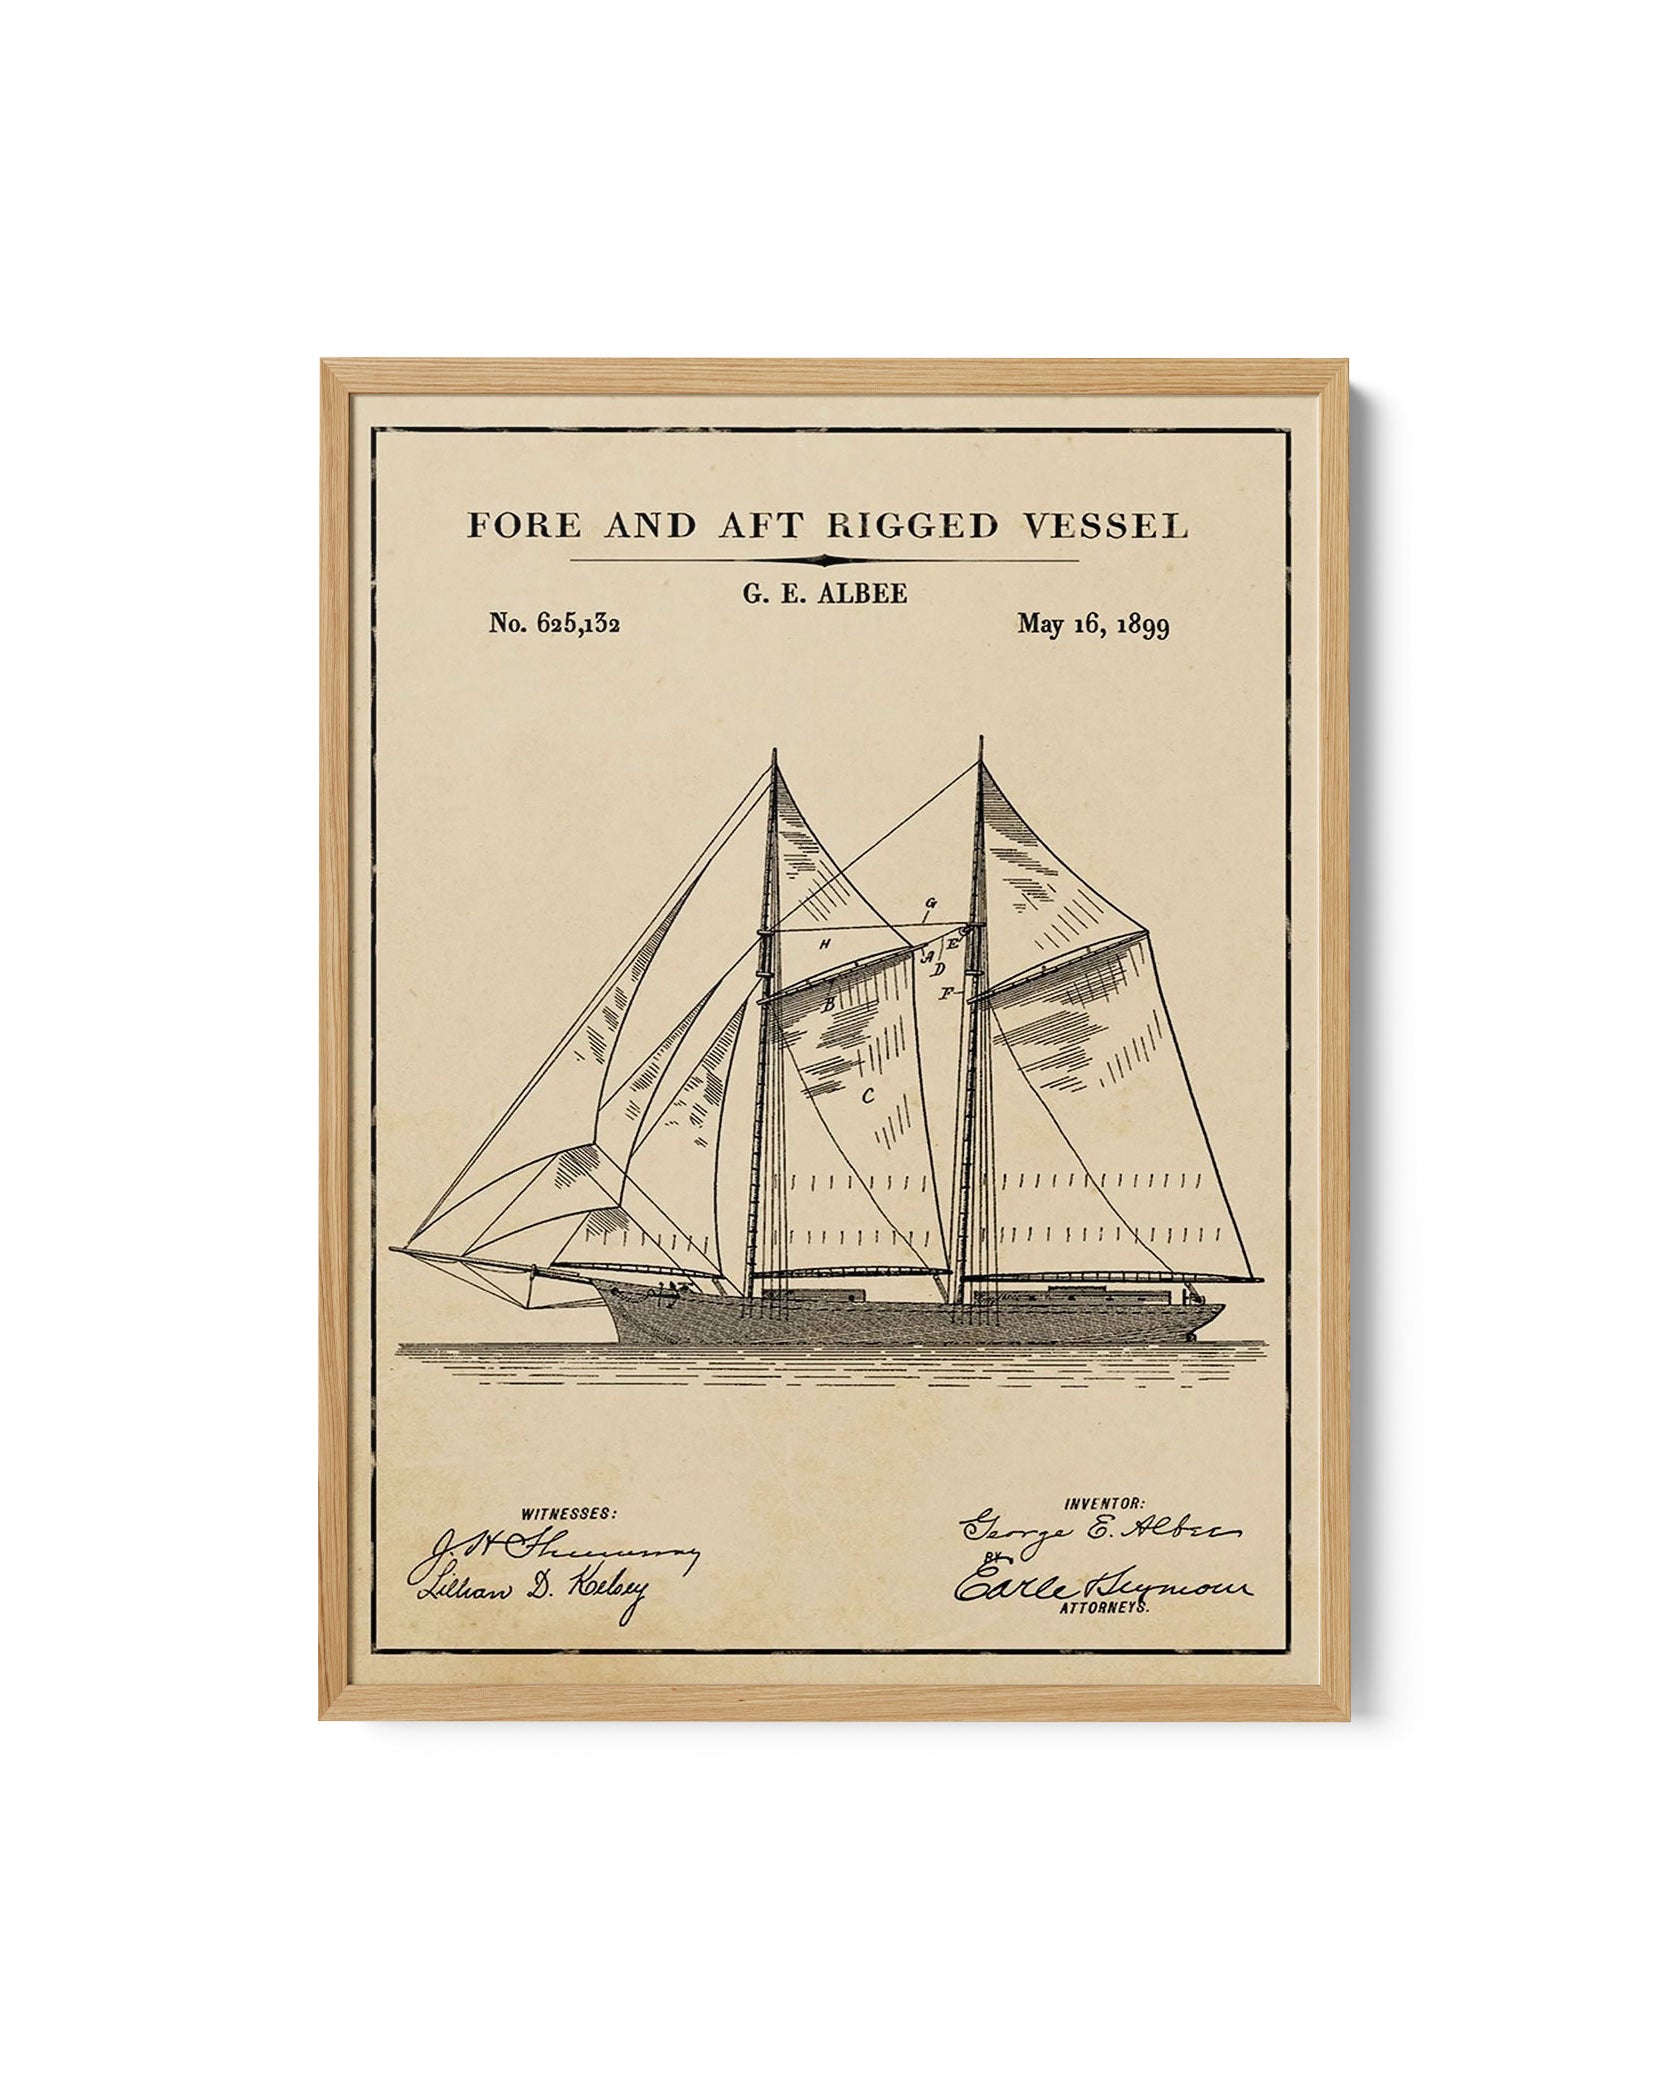 FORE AND AFT RIGGED VESSEL
G. E. ALBEE
No. 625,132
May 16, 1899
G
H
E
A
D
F
B
C
WITNESSES:
Lillian D. Kelsey
INVENTOR:
George E. Albee
BY
Earle & Seymour
ATTORNEYS.